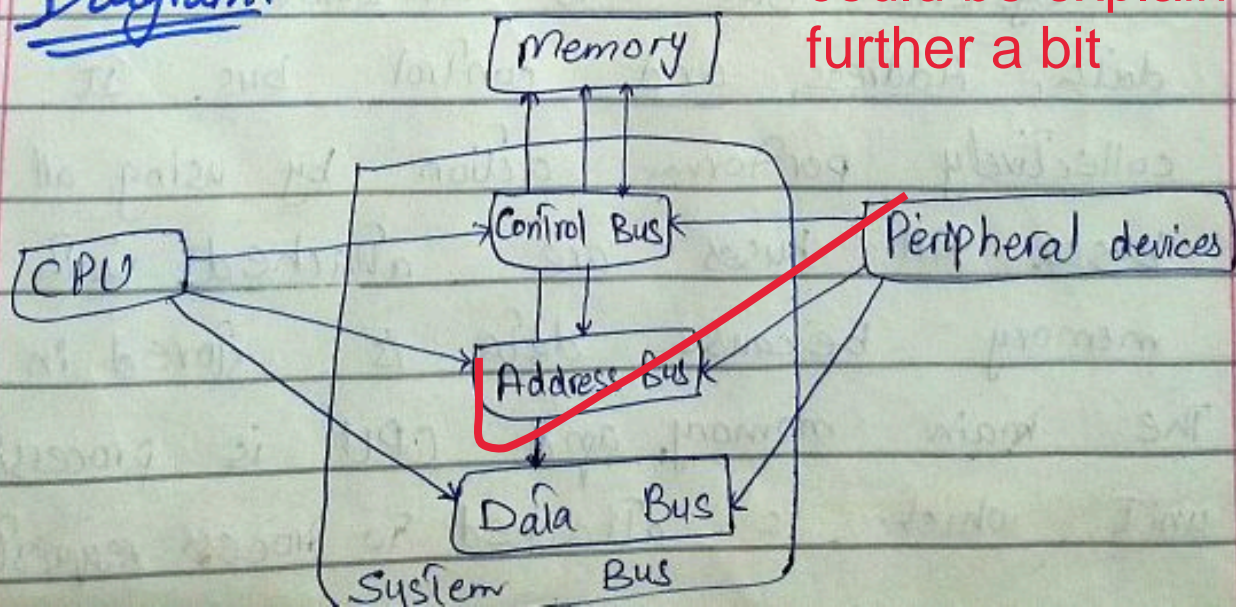 Diagram
could be explain
further a bit
Memory
Control Bus
CPU
Peripheral devices
Address Bus
Data Bus
System Bus